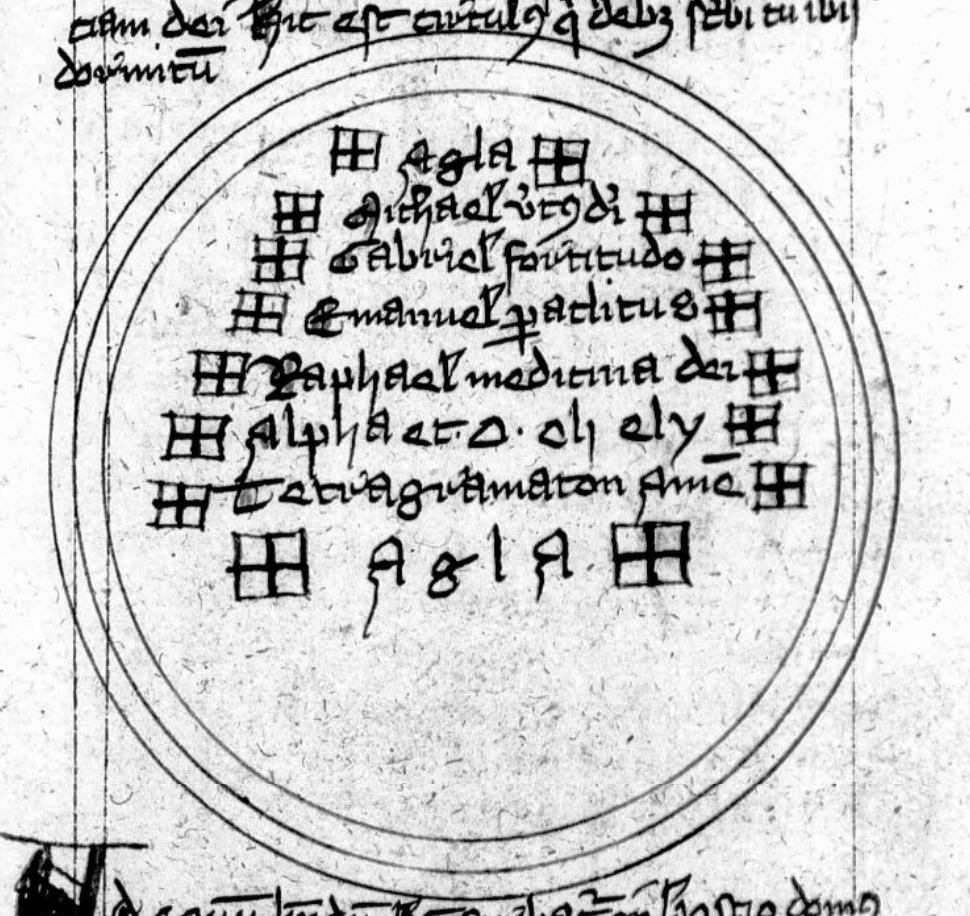 ciam dei Hic est circulus q debz scribi tu ibis
dormitū
Agla
Michael virtus dei
Gabriel fortitudo
Emanuel paclitus
Raphael medicina dei
Alpha et. O. eli ely
Tetragramaton Amē
Agla